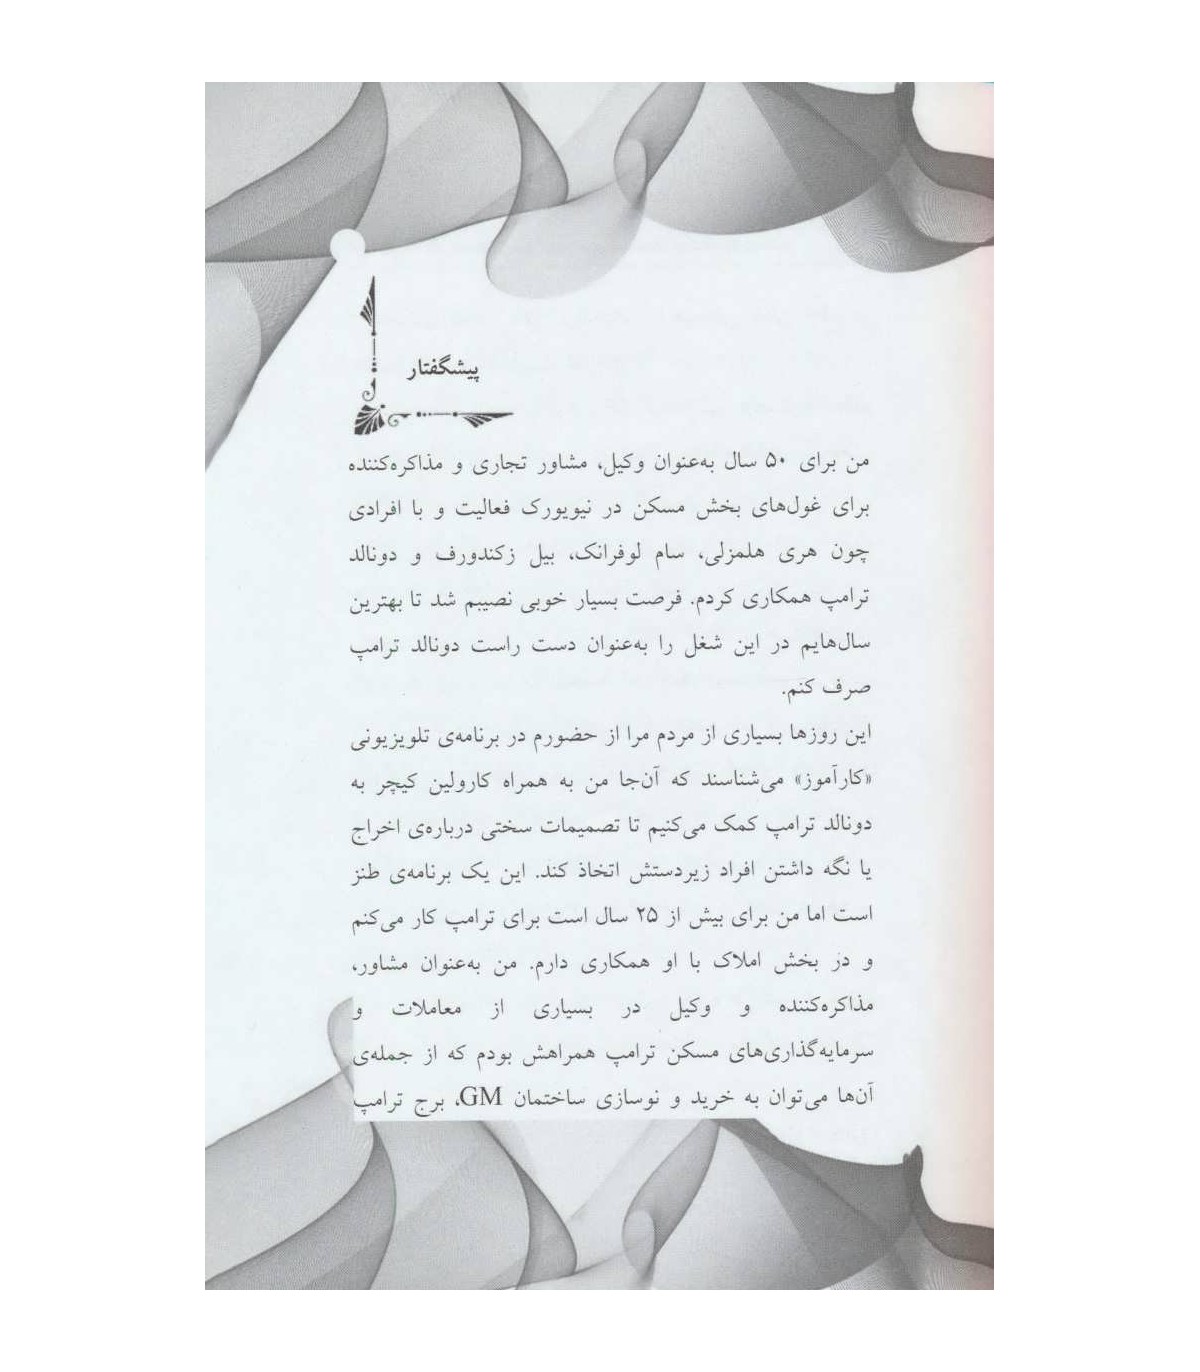 پیشگفتار
من برای ۵۰ سال به‌عنوان وکیل، مشاور تجاری و مذاکره‌کننده
برای غول‌های بخش مسکن در نیویورک فعالیت و با افرادی
چون هری هلمزلی، سام لوفرانک، بیل زکندورف و دونالد
ترامپ همکاری کردم. فرصت بسیار خوبی نصیبم شد تا بهترین
سال‌هایم در این شغل را به‌عنوان دست راست دونالد ترامپ
صرف کنم.
این روزها بسیاری از مردم مرا از حضورم در برنامه‌ی تلویزیونی
«کارآموز» می‌شناسند که آن‌جا من به همراه کارولین کیچر به
دونالد ترامپ کمک می‌کنیم تا تصمیمات سختی درباره‌ی اخراج
یا نگه داشتن افراد زیردستش اتخاذ کند. این یک برنامه‌ی طنز
است اما من برای بیش از ۲۵ سال است برای ترامپ کار می‌کنم
و در بخش املاک با او همکاری دارم. من به‌عنوان مشاور،
مذاکره‌کننده و وکیل در بسیاری از معاملات و
سرمایه‌گذاری‌های مسکن ترامپ همراهش بودم که از جمله‌ی
آن‌ها می‌توان به خرید و نوسازی ساختمان GM، برج ترامپ